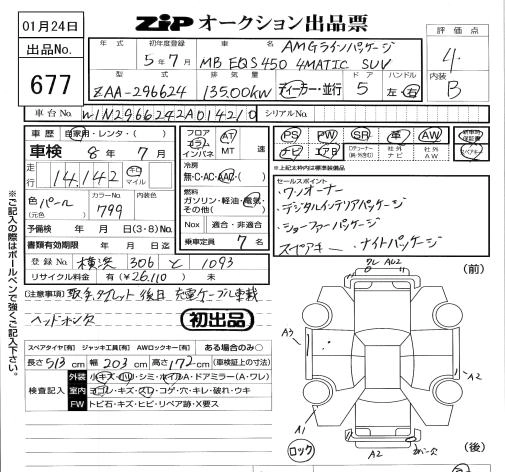 01月24日
ZIP オークション出品票
出品No.
677
年式
初年度登録 5年7月
車名 AMGラインパッケージ
MB EQS450 4MATIC SUV
評価点
4
内装
B
型式 ZAA-296624
排気量 135.00kw
ディーラー・並行
ドア 5
ハンドル 左・右
車台No. W1N2966242A014210
シリアルNo.
車歴 自家用・レンタ・( )
車検 8年 7月
走行 14,142 キロ マイル
色 パール
(元色)
カラーNo. 799
内装色
予備検 年 月 日(3・8)Mo.
書類有効期限 年 月 日迄
登録No. 横浜 306 と 1093
リサイクル料金 有 (¥26,110) 未
フロア コラム インパネ
AT
MT 速
冷房
無・C・AC・AAC・( )
燃料
ガソリン・軽油・電気・
その他( )
Nox 適合・非適合
乗車定員 7 名
PS PW SR 革 AW 新車時保証書
ナビ エアB 社外ナビ 社外AW
※上記太枠内は標準装備品
セールスポイント
・ワンオーナー
・デジタルインテリアパッケージ
・ショーファーパッケージ
ナイトパッケージ
注意事項 取手、タブレット後日 充電ケーブル車載
初出品
スペアタイヤ[有] ジャッキ工具[有] AWロックキー[有] ある場合のみ〇
長さ513cm 幅203cm 高さ172cm (車検証上の寸法)
検査記入
外装 小キズ・凹・シミ・ホイルA・ドアミラー(A・ワレ)
室内 ヨゴレ・キズ・スレ・コゲ・穴・キレ・破れ・ウキ
FW トビ石・キズ・ヒビ・リペア跡・X要ス
(前)
A3
A2
A1
A2
ロック
(後)
※ご記入の際はボールペンで強くご記入下さい。